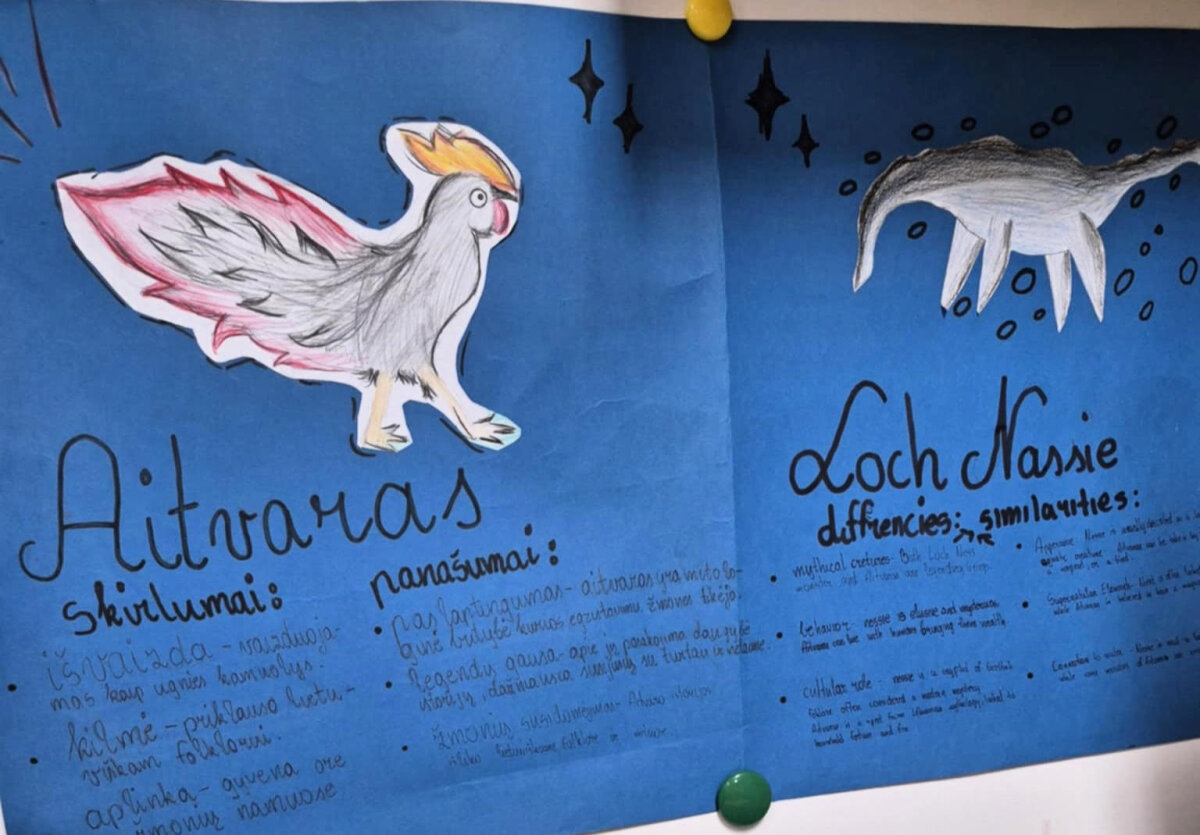 Aitvaras
skirlumai:
išvaizda - vaizduoja-
mas kaip ugnies kamuolys.
kilmė - priklauso lietu-
viškam folklorui.
aplinka - gyvena ore
žmonių namuose
panašumai:
paslaptingumas - aitvaras yra mitolo-
ginė būtybė kurios žmonės tikėjo.
legendų gausa - apie jį pasakojima daugybė
istorijų, dažniausca susijusių su turtau
žmonių susidomėjimas - Aitvaro
folklore ir
Loch Nassie
diffrencies: similarities:
mythical cretures - Both Loch Ness
monster and Aitvaras are legendary
behavior - nessie is elusive and mysterious
Aitvaras can live with humans bringing them wealth.
cultular role - nessie is a cryptid of Scottish
folklore often considered a modern mystery
Aitvaras is a spirit from Lithuanian mythology, linked to
household fortune and fire
Apperance Nessie is usually described as a
aquatic creature, Aitvaras can be
Supernatural Elements - Nessie is often
while Aitvaras is believed to have
Connection to water - Nessie is
while some versions of Aitvaras are